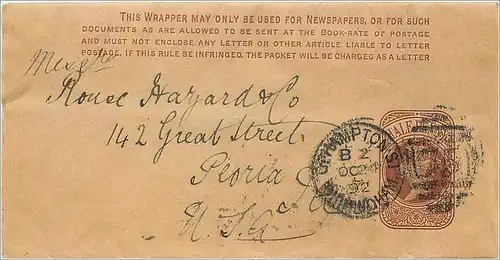 THIS WRAPPER MAY ONLY BE USED FOR NEWSPAPERS, OR FOR SUCH
DOCUMENTS AS ARE ALLOWED TO BE SENT AT THE BOOK-RATE OF POSTAGE
AND MUST NOT ENCLOSE ANY LETTER OR OTHER ARTICLE LIABLE TO LETTER
POSTAGE. IF THIS RULE BE INFRINGED, THE PACKET WILL BE CHARGED AS A LETTER
Rouse Hazard & Co
142 Great Street
Peoria
U.S.A
B 2
OC 2
92